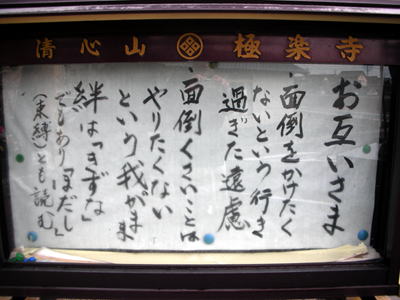 清心山 極楽寺
お互いさま
・面倒をかけたく
ないという行き
過ぎた遠慮
・面倒くさいことは
やりたくない
という我がまま
絆は「きずな」
でもあり「ほだし」
(束縛)とも読む